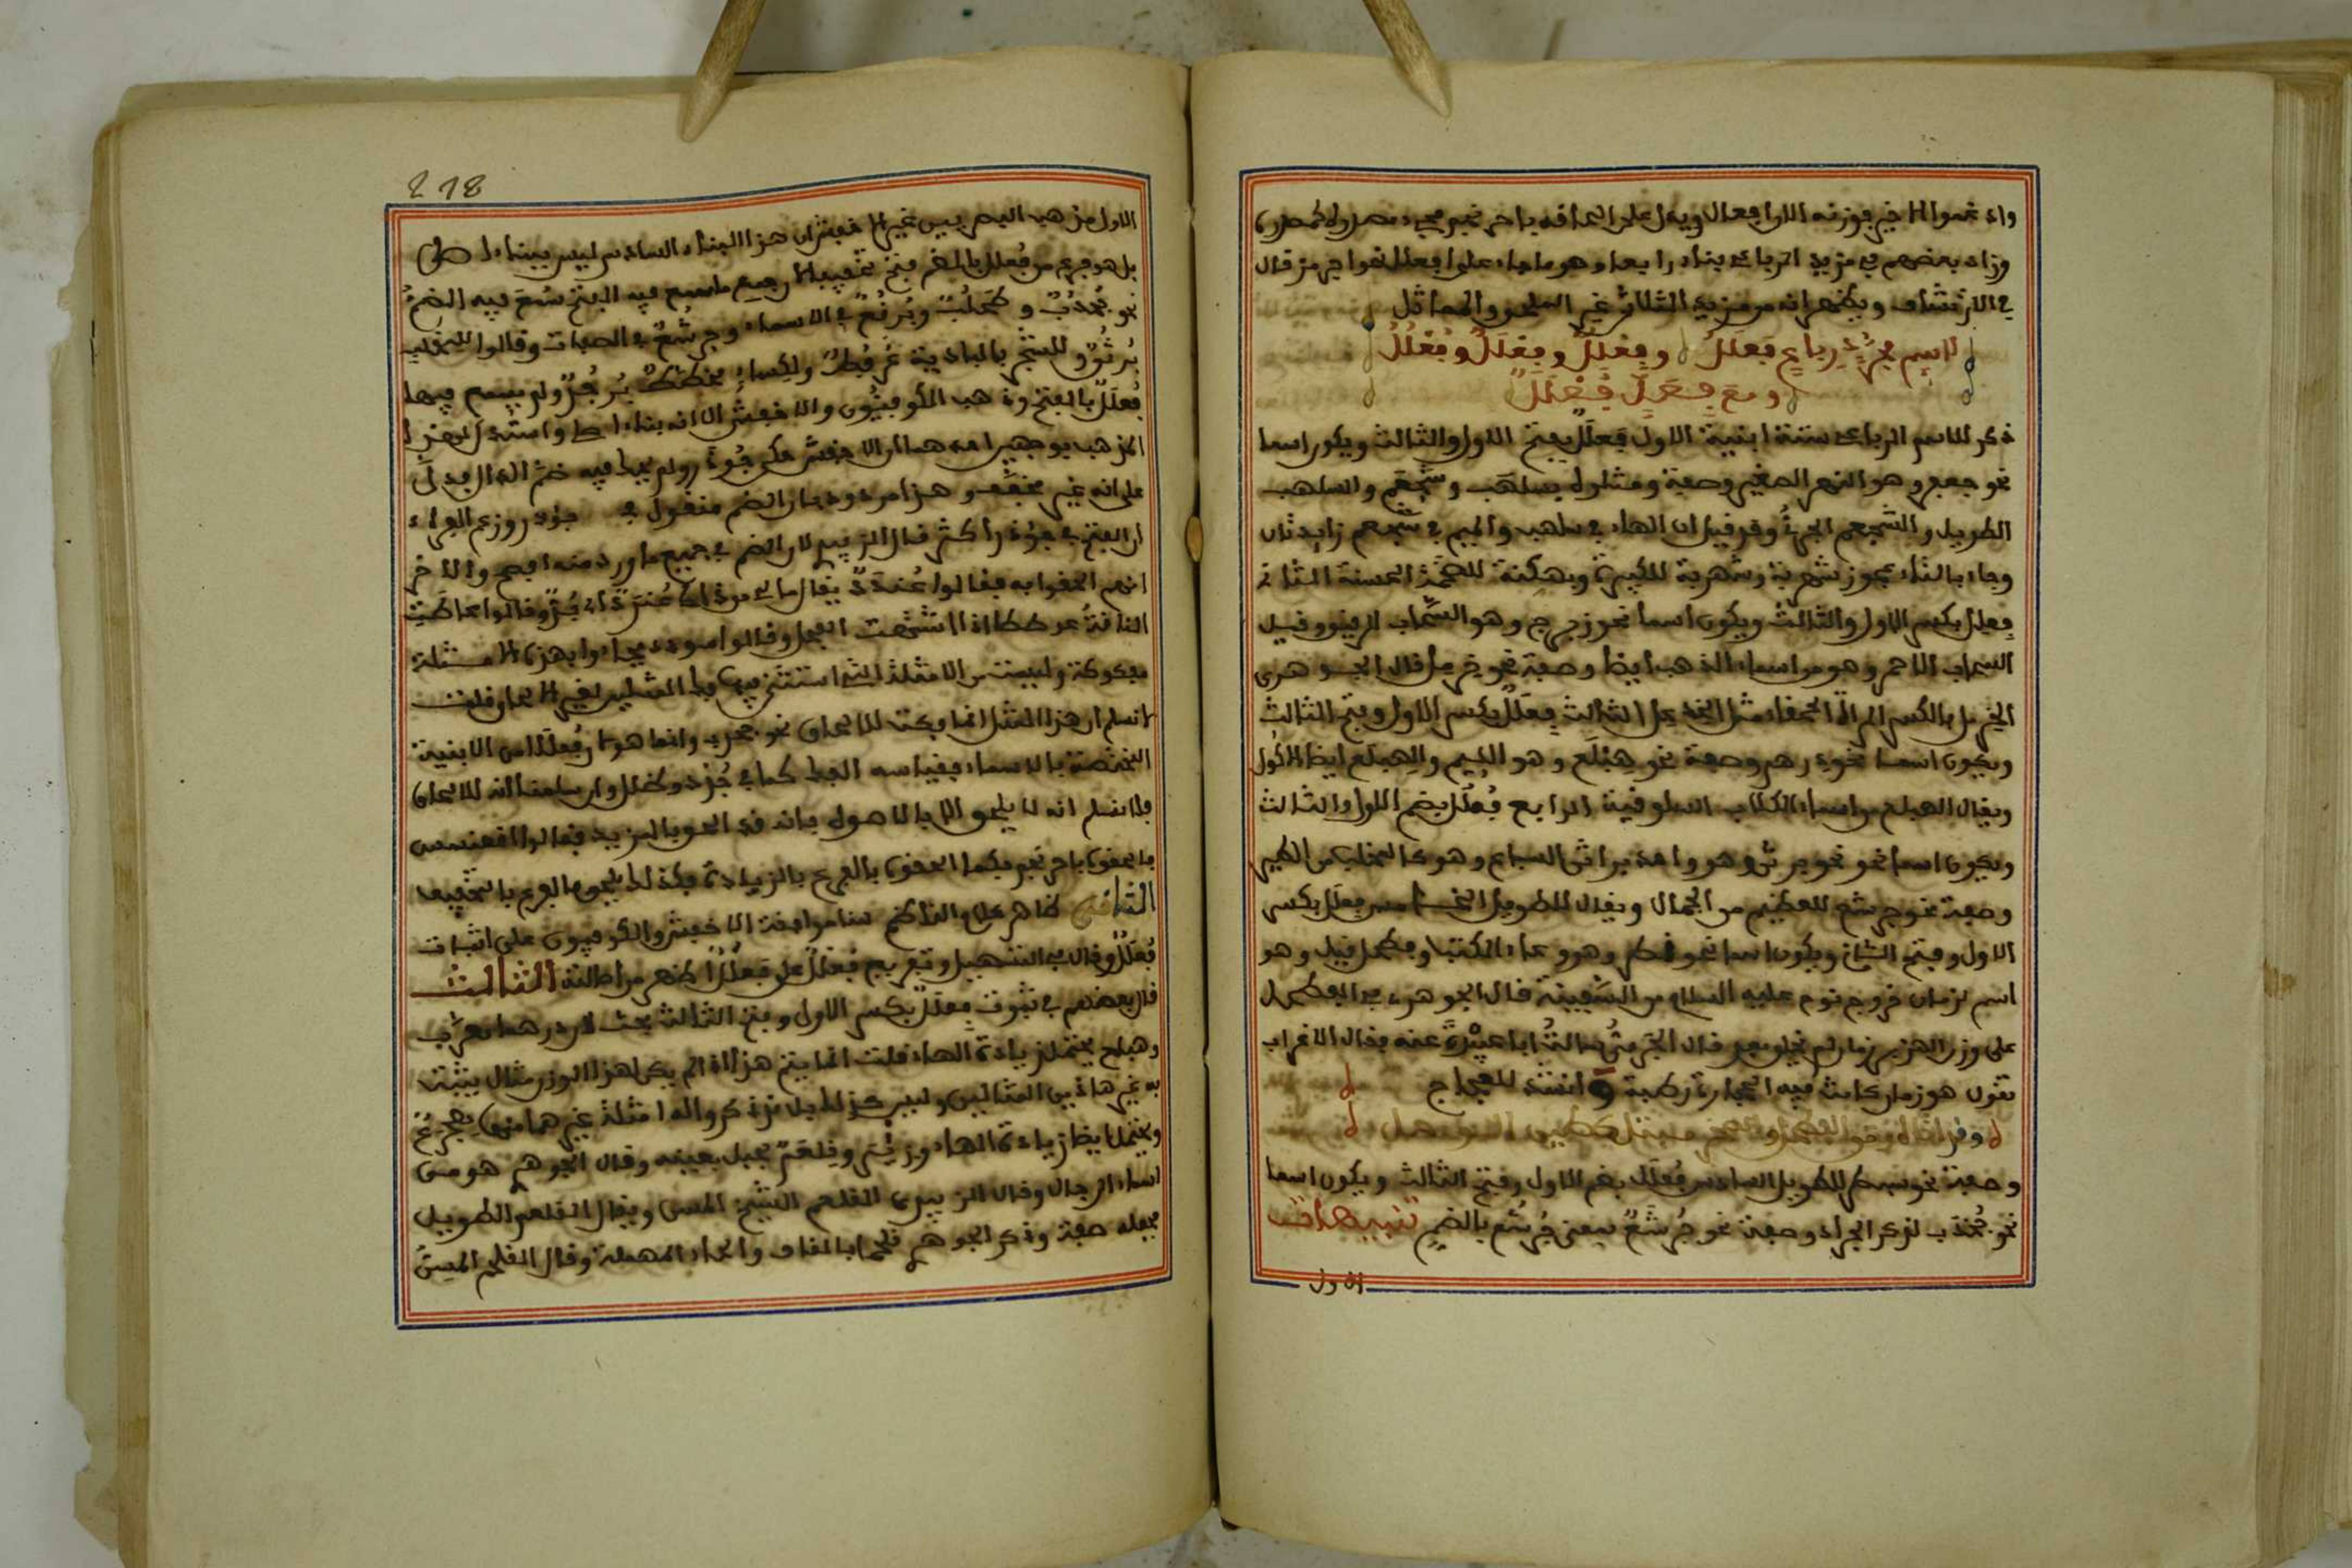 وزاد بعضهم في مزيد الرباعي بناء رابعا وهو ما جاء على افعلل نحو اجرمز قال
في الارتشاف ويظهر انه من مزيد الثلاثي غير الملحق والمماثل
لاسم مجرد رباع فعلل وفعلل وفعلل وفعلل
ومع فعل فعلل
ذكر للاسم الرباعي ستة ابنية الاول فعلل بفتح الاول والثالث ويكون اسما
نحو جعفر وهو النهر الصغير وصفة ومثلوه بسلهب وشجعم والسلهب
الطويل والشجعم الجرئ وقد قيل ان الهاء في سلهب والميم في شجعم زايدتان
وجاء بالتاء عجوز شهربة وشهربة للكبيرة وبهكنة للضخمة الحسنة الثاني
فعلل بكسر الاول والثالث ويكون اسما نحو زبرج وهو السحاب الرقيق وقيل
السحاب الاحمر وهو من اسماء الذهب ايضا وصفة نحو خرمل قال الجوهري
الخرمل بالكسر المراة الحمقاء مثل الخذعل الثالث فعلل بكسر الاول وفتح الثالث
ويكون اسما نحو درهم وصفة نحو هبلع وهو اللئيم والهبلع ايضا الاكول
ويقال الهبلع من اسماء الكلاب السلوقية الرابع فعلل بضم الاول والثالث
ويكون اسما نحو نحو برثن وهو واحد براثن السباع وهو كالمخلب من الطير
وصفة نحو جرشع للعظيم من الجمال ويقال للطويل الخامس فعل بكسر
الاول وفتح الثاني ويكون اسما نحو قمطر وهو وعاء الكتب وفطحل قيل وهو
اسم لزمان خروج نوح عليه السلام من السفينة قال الجوهري في الفطحل
على وزن الهزبر زمن لم يخلق بعد قال الجرمي سالت ابا عبيدة عنه فقال الاعراب
تقول هو زمن كانت فيه الحجارة رطبة وانشد للعجاج
وقد اتانا زمن الفطحل والصخر مبتل كطين الوحل
وصفة نحو سبطر للطويل السادس فعلل بضم الاول وفتح الثالث ويكون اسما
نحو جخدب لذكر الجراد وصفة نحو جرشع بمعنى جرشع بالضم تنبيهات
الاول
218
الاول مذهب البصريين غير الاخفش ان هذا البناء السادس ليس ببناء اصلي
بل هو فرع من فعلل بالضم فتح تخفيفا لان جميع ما سمع فيه الفتح سمع فيه الضم
نحو جخدب و طحلب وبرقع في الاسماء وجرشع في الصفات وقالوا للمخلب
برثن وللشجر بالبادية عرفط ولكساء مخطط برجد ولم يسمع فيها
فعلل بالفتح وذهب الكوفيون والاخفش الى انه بناء اصلي واستدل لهذا
المذهب بوجهين احدهما ان الاخفش حكى جؤذر ولم يحك فيه ضم الدال فدل
على انه غير مخفف وهذا مردود فان الضم منقول في جؤذر وزعم الفراء
ان الفتح في جؤذر اكثر قال الزبيدي لان الضم في جميع ما ورد منه افصح والاخر
انهم الحقوا به فقالوا عندد يقال ما لي من ذلك عندد اي بد وقالوا عاطت
الناقة عوططا اذا اشتهت الفحل وقالوا سودد فجاءوا بهذه الامثلة
مفكوكة وليست من الامثلة التي استثني فيها فك المثلين لغير الالحاق فقلت
لا نسلم ان هذا المثل انما فكت للالحاق نحو جحدب وانما هو لان فعلل من الابنية
المختصة بالاسماء فقياسه الفك كما في جدد وظلل وان سلمنا انه للالحاق
فلا نسلم انه لا يلحق الا بالاصول فانه قد الحق بالمزيد فقالوا اقعنسس
فالحقوه باحرنجم فكما الحقوه بالفرع بالزيادة فكذلك يلحق بالفرع بالتخفيف
الثاني ظاهر كلام الناظم هنا موافقة الاخفش والكوفيون على اثبات
فعلل وقال في التسهيل وتفريع فعلل على فعلل اظهر من اصالته الثالث
قال بعضهم في ثبوت فعلل بكسر الاول وفتح الثالث بحث لان درهما معرب
وهبلع يحتمل زيادة الهاء قلت انما يتم هذا اذا لم يكن لهذا الوزن مثال يثبت
به غير هاذين المثالين وليس كذلك بل قد ذكروا له امثلة غيرهما منها هجرع
ويحتمل ايضا زيادة الهاء وزئبر وقلعم لجبل بعينه وقال الجوهري هو من
اسماء الرجال وقال الزبيدي القلعم الشيخ المسن ويقال القلعم الطويل
فجعله صفة وذكر الجوهري قلحما بالقاف والحاء المهملة وقال القلحم المسن